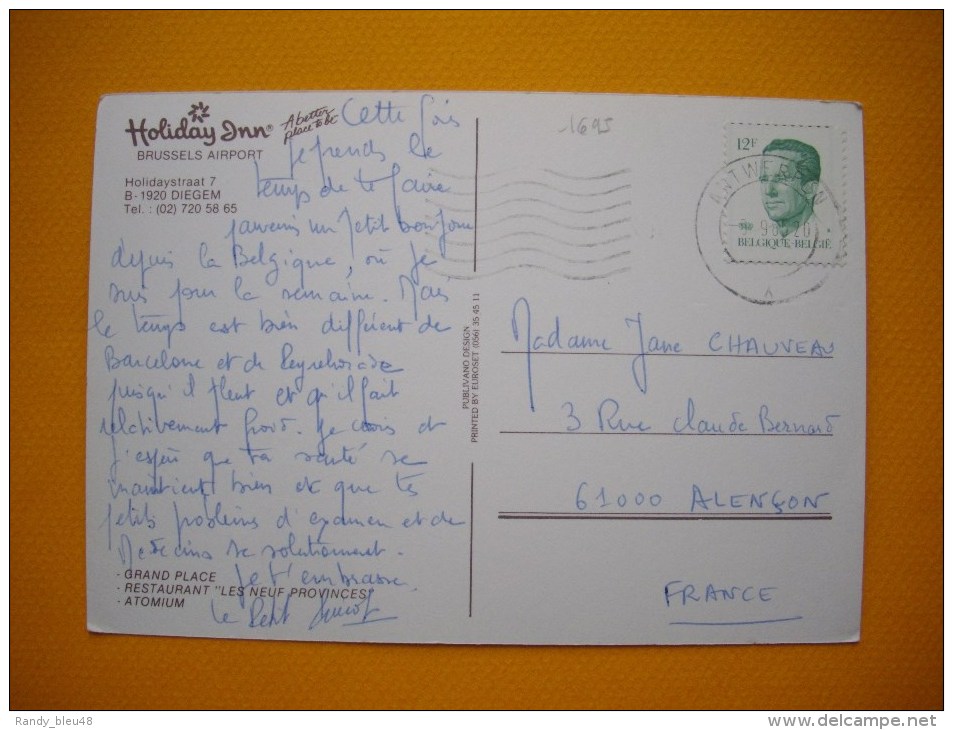 Holiday Inn®
A better
place to be
BRUSSELS AIRPORT
Holidaystraat 7
B-1920 DIEGEM
Tel. : (02) 720 58 65
Cette fois
je prends le
temps de te faire
parvenir un petit bonjour
depuis la Belgique, où je
suis pour la semaine. Mais
le temps est bien différent de
Barcelone et de
puisqu'il pleut et qu'il fait
relativement froid. Je crois et
j'espère que ta santé se
maintient bien et que tes
petits problèmes d'examen et de
Médecins se solutionnent.
Je t'embrasse.
Le Petit
- GRAND PLACE
- RESTAURANT "LES NEUF PROVINCES"
- ATOMIUM
PUBLIVANO DESIGN
PRINTED BY EUROSET (056) 35 45 11
1695
12F
BELGIQUE-BELGIË
ANTWERPEN
Madame Jane CHAUVEAU
3 Rue Claude Bernard
61000 ALENÇON
FRANCE
Randy_bleu48
www.delcampe.net